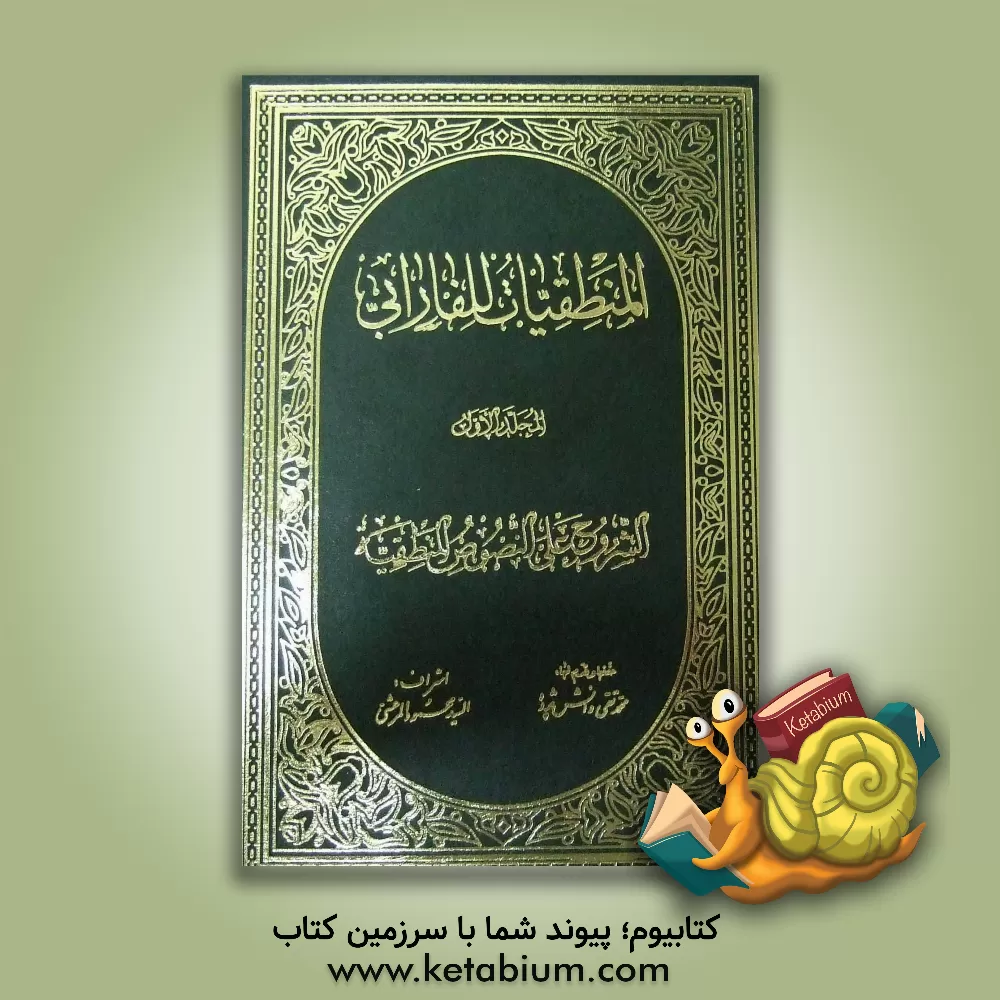 المنطقيّات للفارابيّ
المُجلّد الأوّل
الشروح على النصوص المنطقيّة
حققها وقدم لها:
محمد تقي دانش پژوه
اشراف:
السيد محمود المرعشي
Ketabium
کتابیوم؛ پیوند شما با سرزمین کتاب
www.ketabium.com